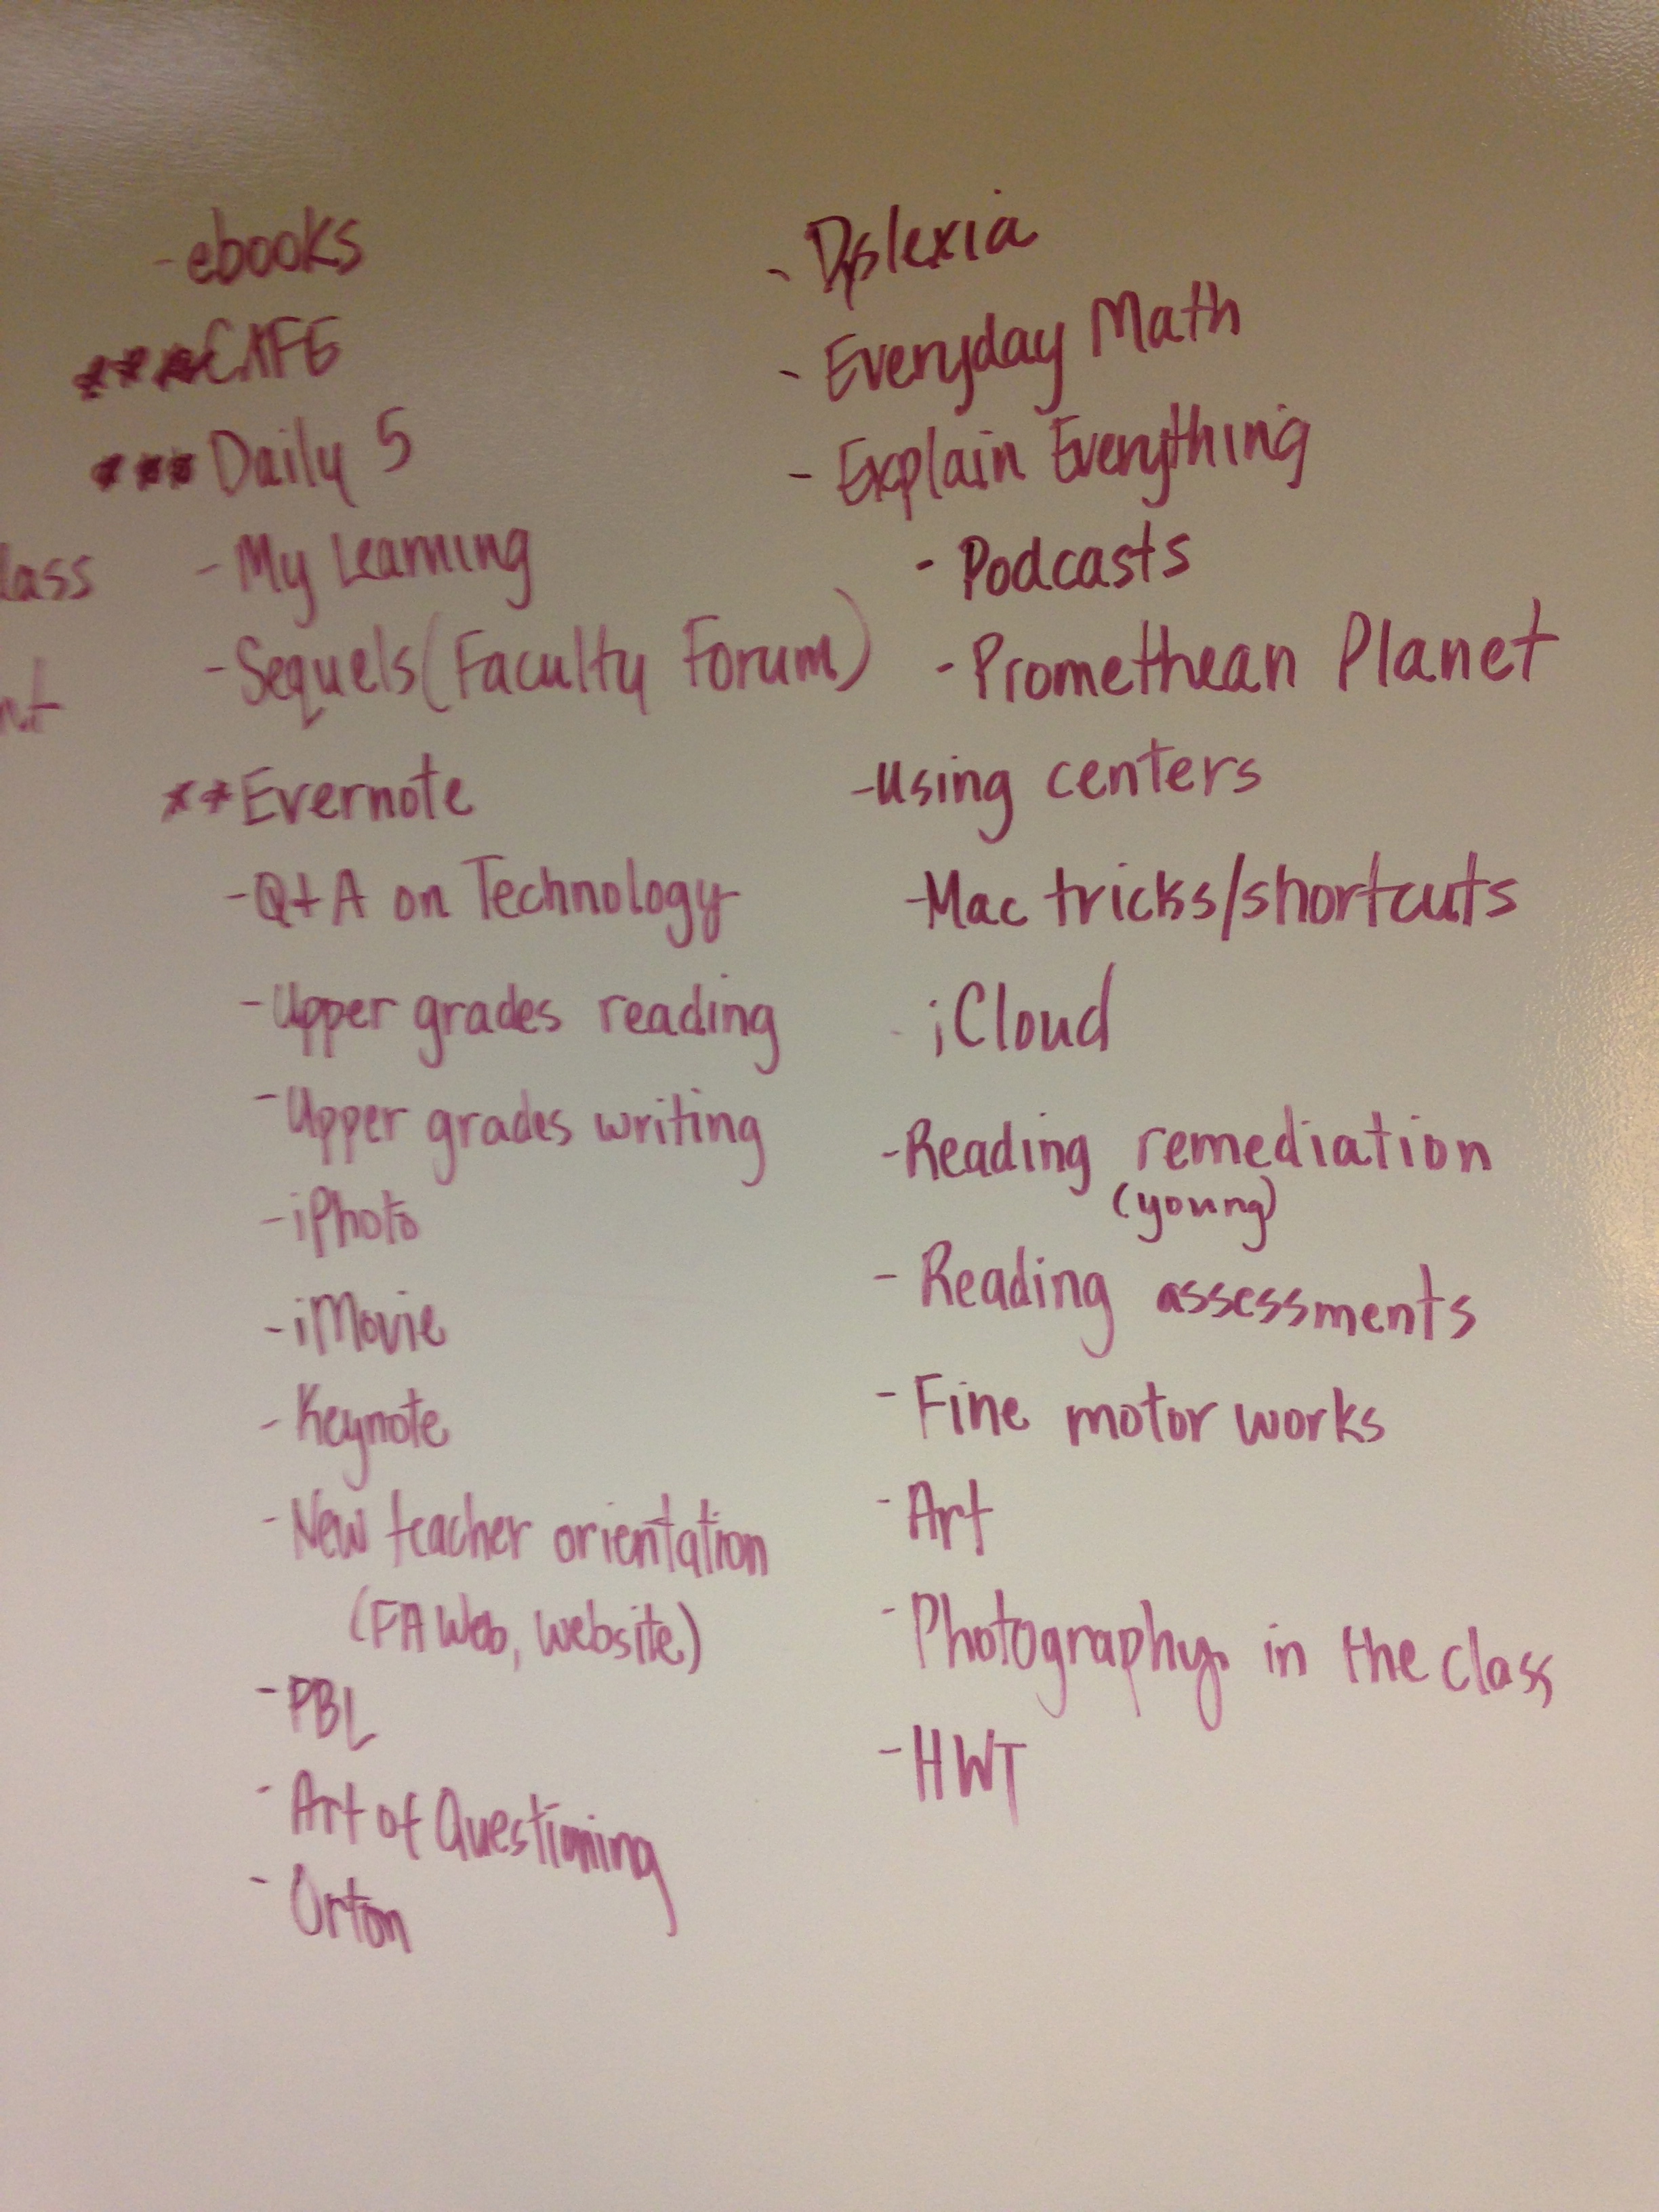 - ebooks
***CAFE
***Daily 5
- My Learning
- Sequels (Faculty Forum)
**Evernote
- Q+A on Technology
- Upper grades reading
- Upper grades writing
- iPhoto
- iMovie
- Keynote
- New teacher orientation
(FAWeb, website)
- PBL
- Art of Questioning
- Orton
- Dyslexia
- Everyday Math
- Explain Everything
- Podcasts
- Promethean Planet
- Using centers
- Mac tricks/shortcuts
- iCloud
- Reading remediation
(young)
- Reading assessments
- Fine motor works
- Art
- Photography in the class
- HWT